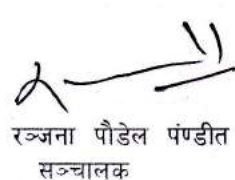 रञ्जना पौडेल पंण्डीत
सञ्चालक